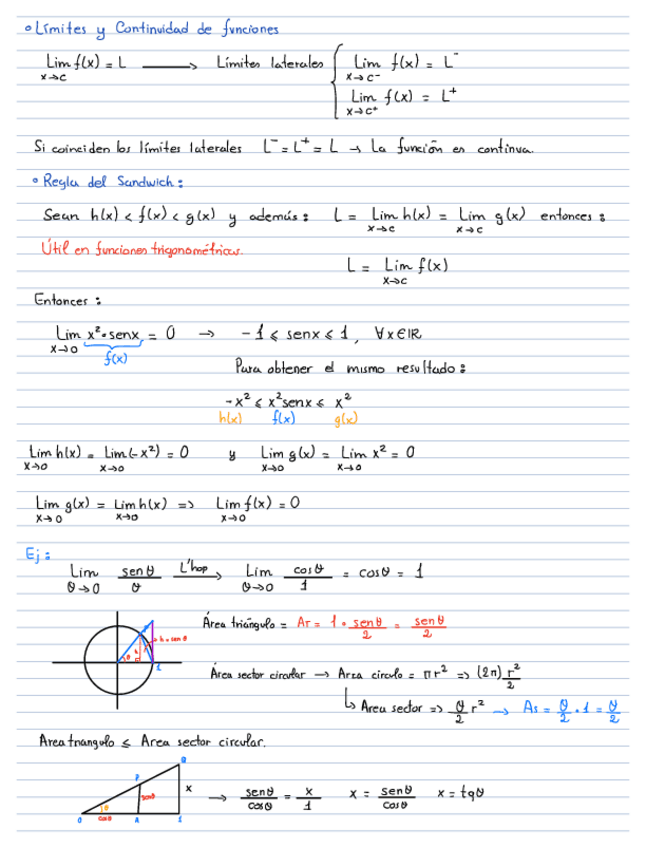 • Límites y Continuidad de funciones
Lim f(x) = L ⟶ Límites laterales { Lim f(x) = L⁻
x→c x→c⁻
Lim f(x) = L⁺
x→c⁺
Si coinciden los límites laterales L⁻ = L⁺ = L → La función es continua.
• Regla del Sandwich:
Sean h(x) < f(x) < g(x) y además: L = Lim h(x) = Lim g(x) entonces:
x→c x→c
Útil en funciones trigonométricas.
L = Lim f(x)
x→c
Entonces:
Lim x²·senx = 0 → -1 ≤ senx ≤ 1, ∀x∈ℝ
x→0 f(x)
Para obtener el mismo resultado:
-x² ≤ x²senx ≤ x²
h(x) f(x) g(x)
Lim h(x) = Lim(-x²) = 0 y Lim g(x) = Lim x² = 0
x→0 x→0 x→0 x→0
Lim g(x) = Lim h(x) => Lim f(x) = 0
x→0 x→0 x→0
Ej:
Lim senθ/θ L'hop⟶ Lim cosθ/1 = cosθ = 1
θ→0 θ→0
Área triángulo = Ar = 1·senθ/2 = senθ/2
h = senθ
θ
1
Área sector circular → Area circulo = πr² => (2π) r²/2
↳ Area sector => θ/2 r² → As = θ/2 · 1 = θ/2
Area triangulo ≤ Area sector circular.
P
senθ
x → senθ/cosθ = x/1 x = senθ/cosθ x = tgθ
θ
O cosθ A 1